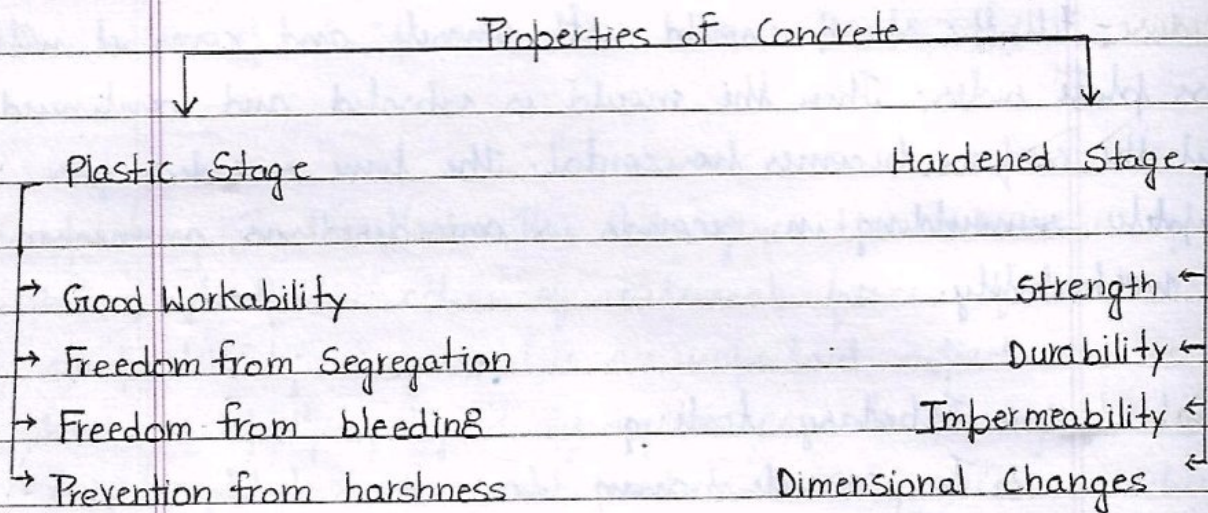 Properties of Concrete
Plastic Stage
Hardened Stage
→ Good Workability
→ Freedom from Segregation
→ Freedom from bleeding
→ Prevention from harshness
Strength ←
Durability ←
Impermeability ←
Dimensional Changes ←